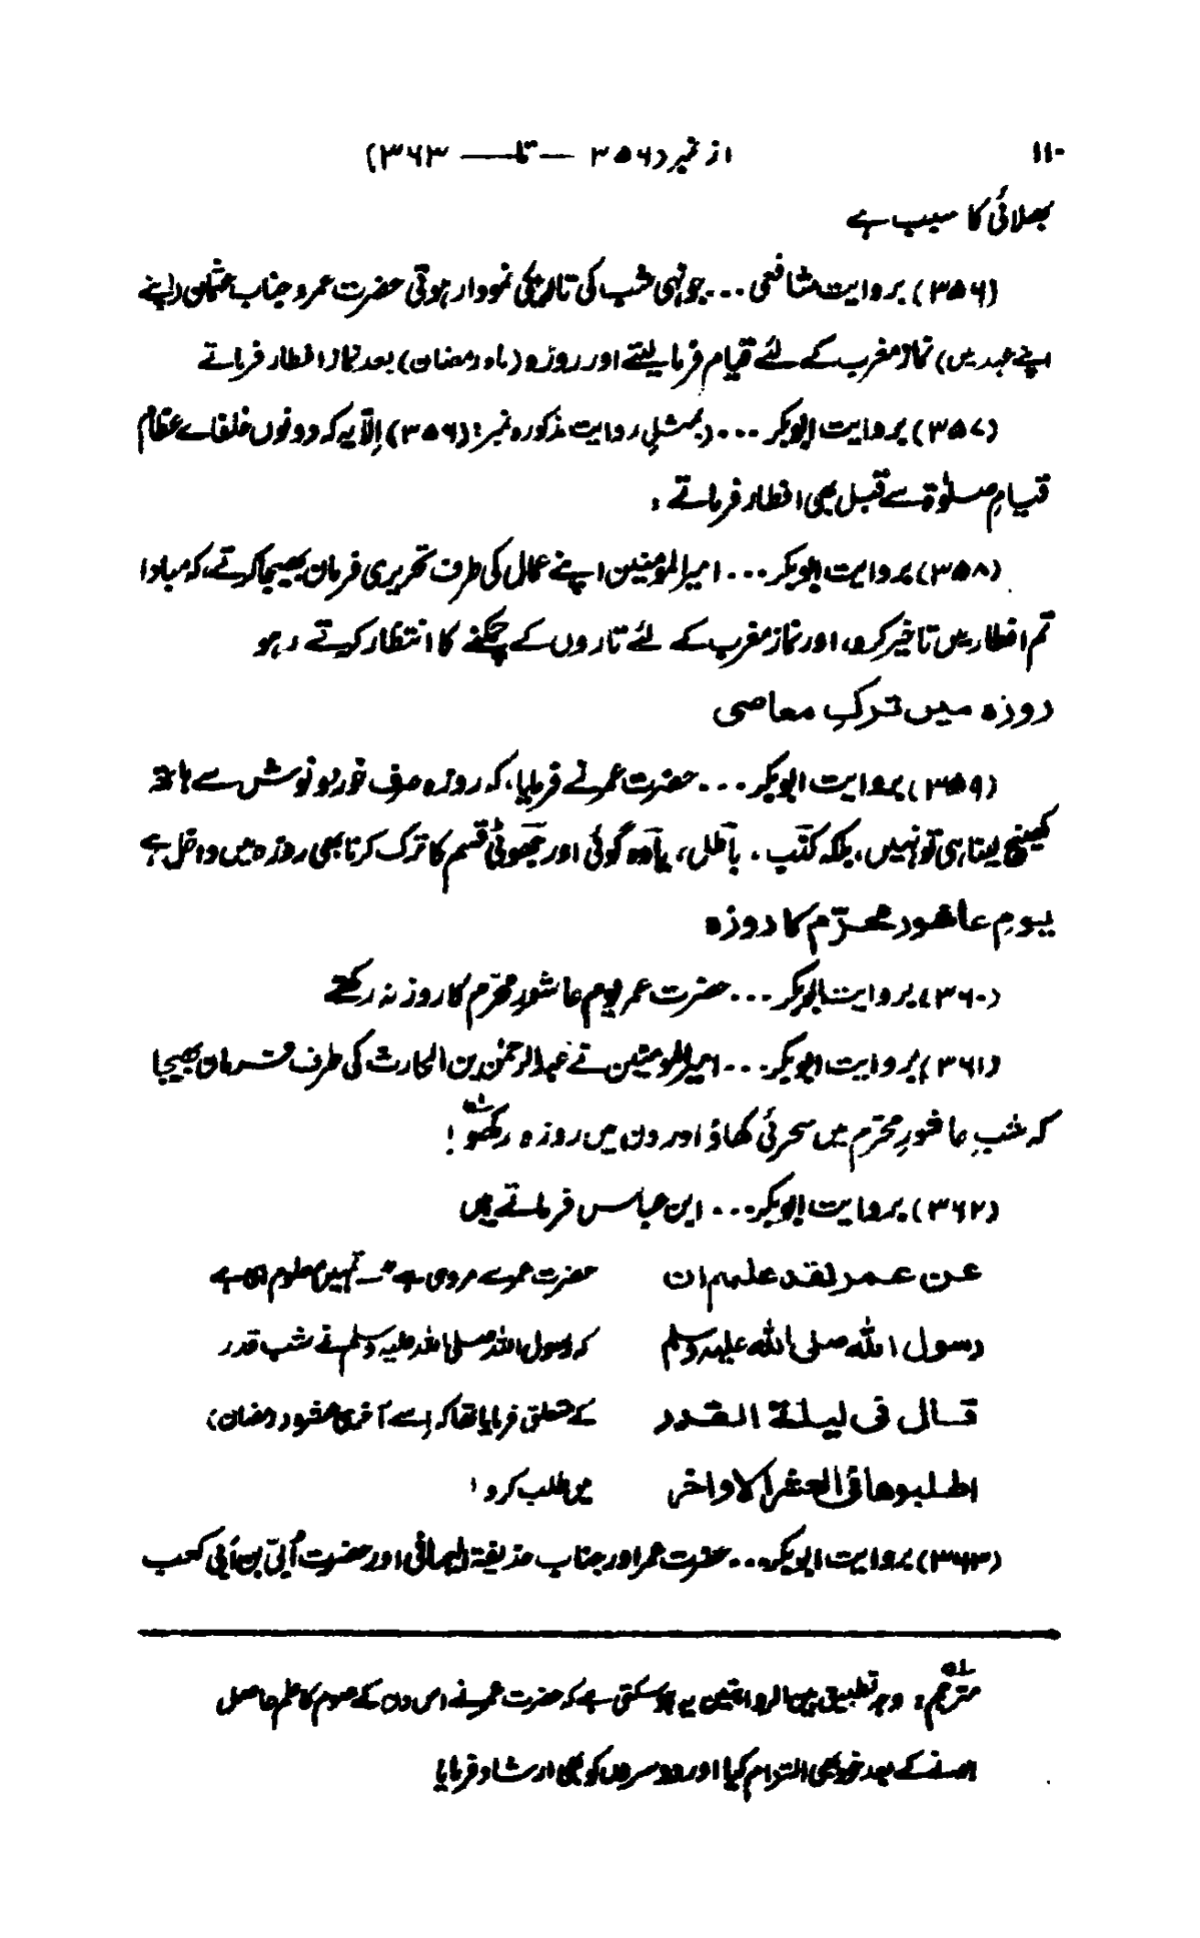 ۱۱۰ از نمبر (۳۵۶ — تا — ۳۶۳)
بھلائی کا سبب ہے
(۳۵۶) بروایت شافعی ... جونہی شب کی تاریکی نمودار ہوتی حضرت عمر و جناب عثمان (اپنے
اپنے عہد یں) نماز مغرب کے لئے قیام فرما لیتے اور روزہ (ماہ رمضان) بعد نماز افطار فرماتے
(۳۵۷) بروایت ابوبکر ... (بمثلِ روایت مذکورہ نمبر: (۳۵۶) اِلّا یہ کہ دونوں خلفاے عظام
قیامِ صلوٰۃ سے قبل بھی افطار فرماتے :
(۳۵۸) بروایت ابوبکر ... امیرالمؤمنین اپنے عمال کی طرف تحریری فرمان بھیجا کرتے، کہ مبادا
تم افطار یں تاخیر کرو، اور نماز مغرب کے لئے تاروں کے چمکنے کا انتظار کرتے رہو
روزہ میں ترکِ معاصی
(۳۵۹) بروایت ابوبکر ... حضرت عمر نے فرمایا، کہ روزہ صرف خور و نوش سے ہاتھ
کھینچ لینا ہی تو نہیں، بلکہ کذب ، باطل، یاوہ گوئی اور جھوٹی قسم کا ترک کرنا بھی روزہ میں داخل ہے
یومِ عاشور محرّم کا روزہ
(۳۶۰) بروایت ابوبکر ... حضرت عمر یوم عاشورِ محرّم کا روز نہ رکھتے
(۳۶۱) بروایت ابوبکر ... امیرالمومنین نے عبدالرحمٰن بن الحارث کی طرف فرمان بھیجا
کہ شبِ عاشورِ محرّم میں سحرئی کھاؤ اور دن میں روزہ رکھو لہ !
(۳۶۲) بروایت ابوبکر ... ابن عباس فرماتے ہیں
عن عمر لقد علمہم ان حضرت عمر سے مروی ہے تمہیں معلوم ہے
رسول اللہ صلی اللہ علیہ وسلم کہ رسول اللہ صلی اللہ علیہ وسلم نے شب قدر
قال فی لیلۃ القدر کے متعلق فرمایا تھا کہ اِسے آخری عشور (رمضان)
اطلبوھا فی العشر الاواخر میں طلب کرو !
(۳۶۳) بروایت ابوبکر ... حضرت عمر اور جناب حذیفۃ الیمانی اور حضرت اُبیّ بن اَبی کعب
لہ مترجم : وجہ تطبیق بین الروایتین یہ ہو سکتی ہے کہ حضرت عمر نے اس دن کے صوم کا علم حاصل
ہونے کے بعد خود بھی التزام کیا اور دوسروں کو بھی ارشاد فرمایا